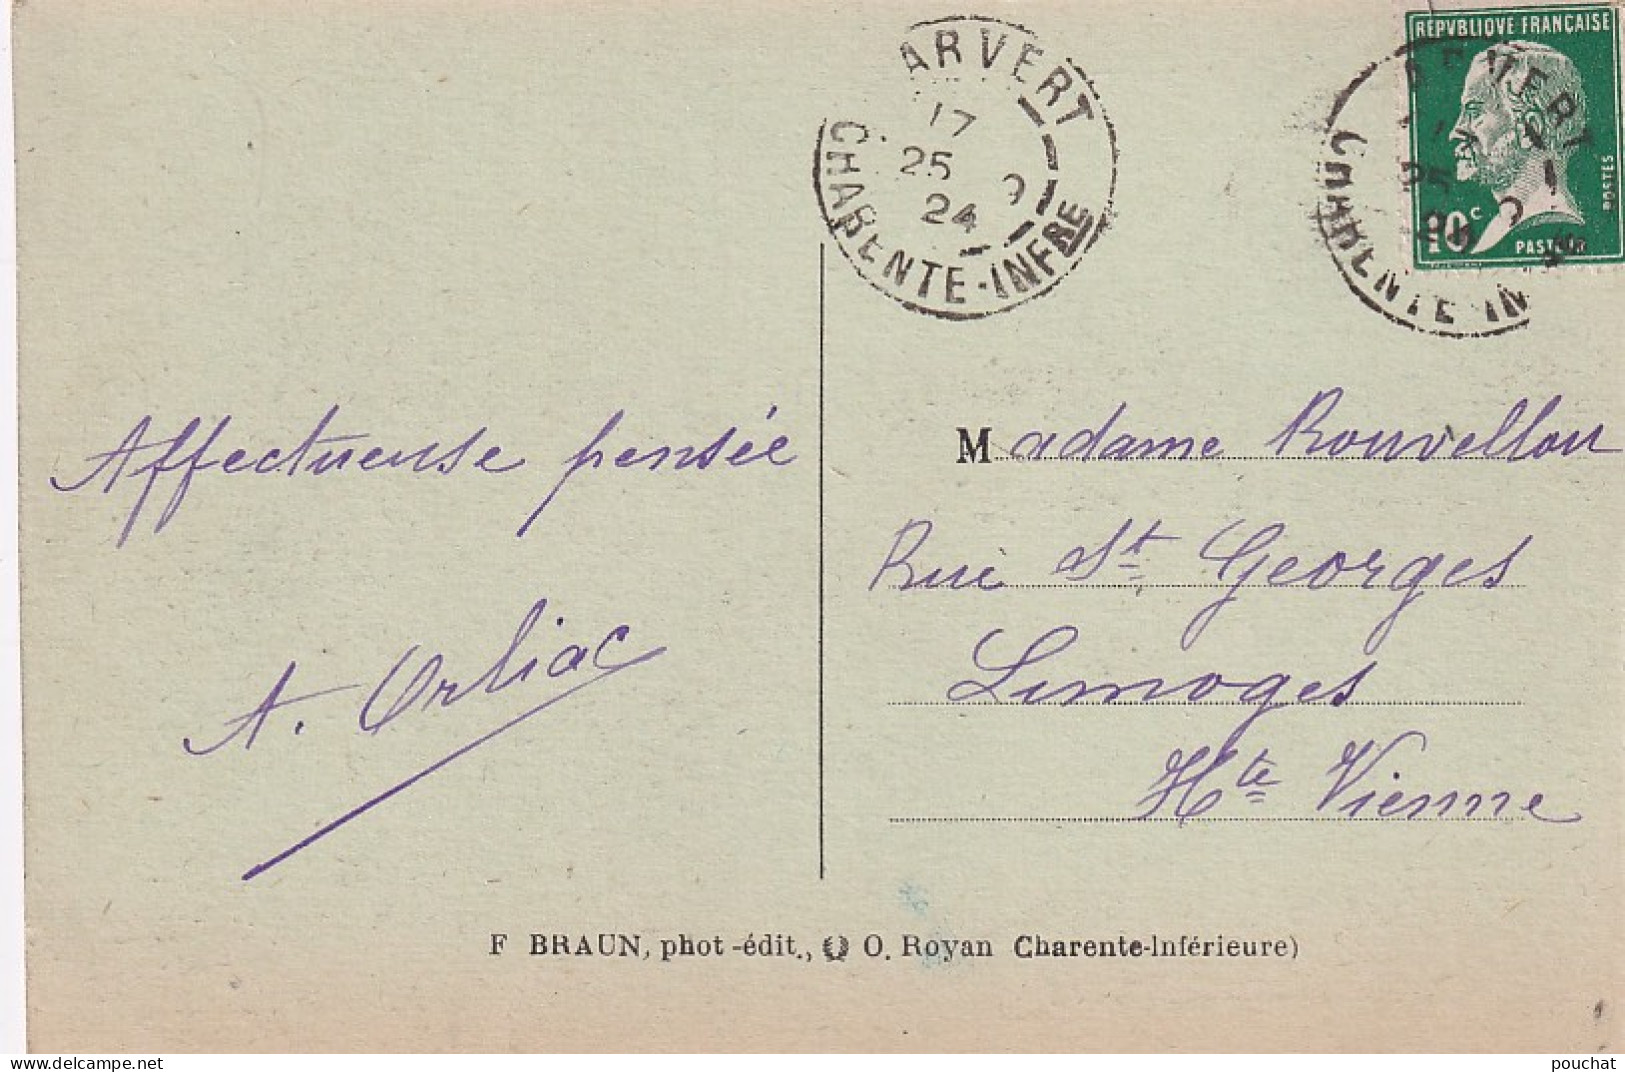 ARVERT
17
25 9
24
CHARENTE-INFRE
REPVBLIQVE FRANÇAISE
POSTES
10c
CHARENTE IN
Affectueuse pensée
A. Orliac
Madame Rouvellou
Rue St Georges
Limoges
Hte Vienne
F BRAUN, phot-édit., O. Royan Charente-Inférieure)
pouchat